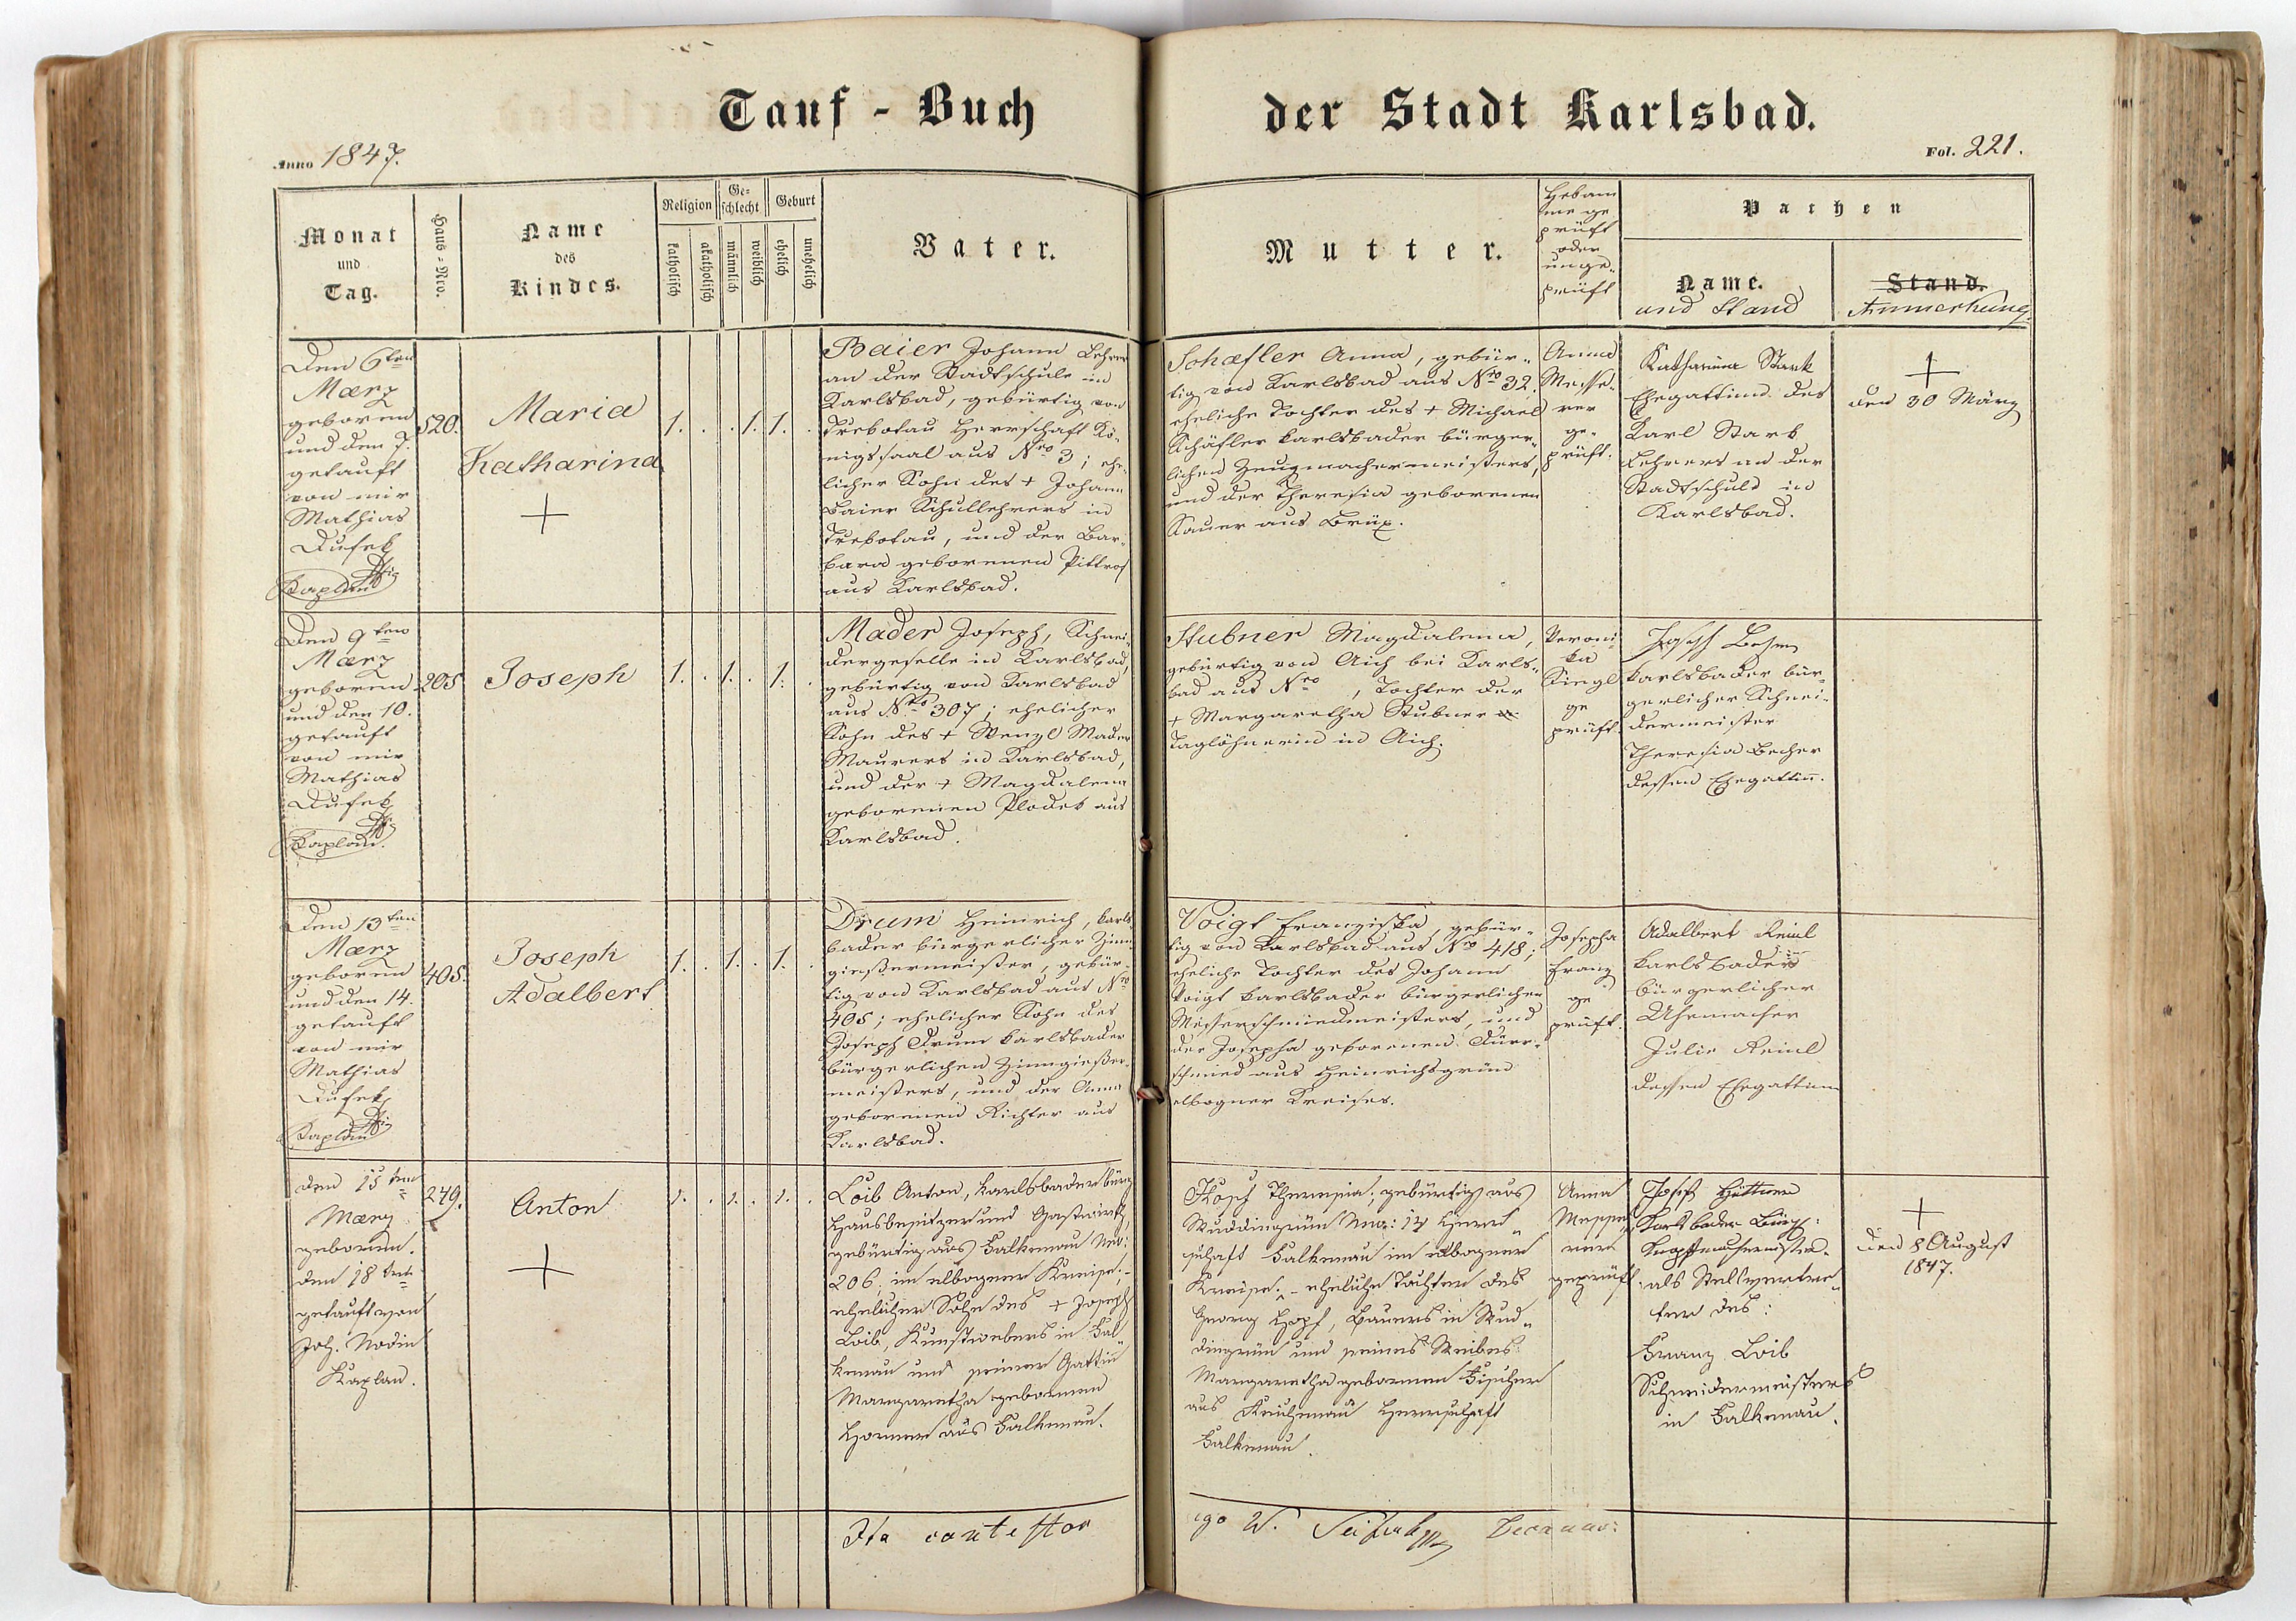 Tauf - Buch
der Stadt Karlsbad.
Anno 1847.
Fol. 221.
Monat
und
Tag.
Haus-Nro.
Name
des
Kindes.
Religion
katholisch
akatholisch
Ge-
schlecht
männlich
weiblich
Geburt
ehelich
unehelich
Vater.
Mutter.
Hebam
me ge
prüft
oder
unge-
prüft
Pathen
Name.
und Stand
Stand.
Anmerkung.
Den 6ten
Maerz
geboren
und den 7.
getauft
von mir
Mathias
Dusek
Kaplan
520.
Maria
Katharina
1. . . 1. 1. .
Baier Johann Lehrer
an der Stadtschule in
Karlsbad, gebürtig von
Trebotau Herrschaft Kö-
nigssaal aus Nro 3; ehe-
licher Sohn des + Johann
Baier Schullehrers in
Trebotau, und der Bar-
bara geborenen Pittrof
aus Karlsbad.
Schæfler Anna, gebür-
tig von Karlsbad aus Nro 32,
eheliche Tochter des + Michael
Schäfler karlsbader bürger-
lichen Zeugmachermeisters,
und der Theresia geborenen
Sauer aus Brüx.
Anna
Messe-
rer
ge-
prüft.
Katharina Stark
Ehegattinn des
Karl Stark
Lehrers an der
Stadtschule in
Karlsbad.
+
den 30 März
Den 9ten
Maerz
geboren
und den 10.
getauft
von mir
Mathias
Dusek
Kaplan.
205
Joseph
1. . 1. . 1. .
Mader Joseph, Schnei-
dergeselle in Karlsbad,
gebürtig von Karlsbad
aus Nro 307; ehelicher
Sohn des + Wenzl Mader
Maurers in Karlsbad,
und der + Magdalena
geborenen Plodek aus
Karlsbad.
Stubner Magdalena,
gebürtig von Aich bei Karls-
bad aus Nro , Tochter der
+ Margaretha Stubner
Taglöhnerin in Aich.
Veroni-
ka
Siegl
ge
prüft.
Joseph
karlsbader bür-
gerlicher Schnei-
dermeister
Theresia Becher
dessen Ehegattin.
Den 13ten
Maerz
geboren
und den 14.
getauft
von mir
Mathias
Dusek
Kaplan
405.
Joseph
Adalbert
1. . 1. . 1. .
Drum Heinrich, karls-
bader bürgerlicher Zinn-
gießermeister, gebür-
tig von Karlsbad aus Nro
405; ehelicher Sohn des
Joseph Drum karlsbader
bürgerlichen Zinngießer-
meisters, und der Anna
geborenen Richter aus
Karlsbad.
Voigt Franziska, gebür-
tig von Karlsbad aus Nro 418;
eheliche Tochter des Johann
Voigt karlsbader bürgerlicher
Messerschmiedmeisters, und
der Josepha geborenen Dürr-
schmied aus Heinrichsgrün
elbogner Kreises.
Josepha
Franz
ge
prüft.
Adalbert Reinl
karlsbader
bürgerlicher
Uhrmacher
Julie Reinl
dessen Ehegattinn
Den 15ten
Maerz
geboren.
den 18ten
getauft von
Joh. Nodin
Kaplan.
249.
Anton
1. . 1. . 1. .
Loib Anton, karlsbader bürg
Hausbesitzer und Gastwirth,
gebürtig aus Falkenau Nro:
206, im elbogner Kreise;
ehelicher Sohn des + Joseph
Loib, Kunstwebers in Fal-
kenau und seiner Gattin
Margaretha geborenen
Horner aus Falkenau.
Theresia, gebürtig aus
Nro: 14 Herr-
schaft Falkenau im elbogner
Kreise. - eheliche Tochter des
Georg Hopf, Bauers in
und seines Weibes
Margaretha geborenen Fischer
aus Herrschaft
Falkenau.
Anna
Messe
rer
geprüft
Joseph Hüttner
Karlsbader Bürg:
als Stellvertre-
ter des:
Franz Loib
Schneidermeisters
in Falkenau.
+
den 8 August
1847.
Ita contestor
ego W. Decanus: